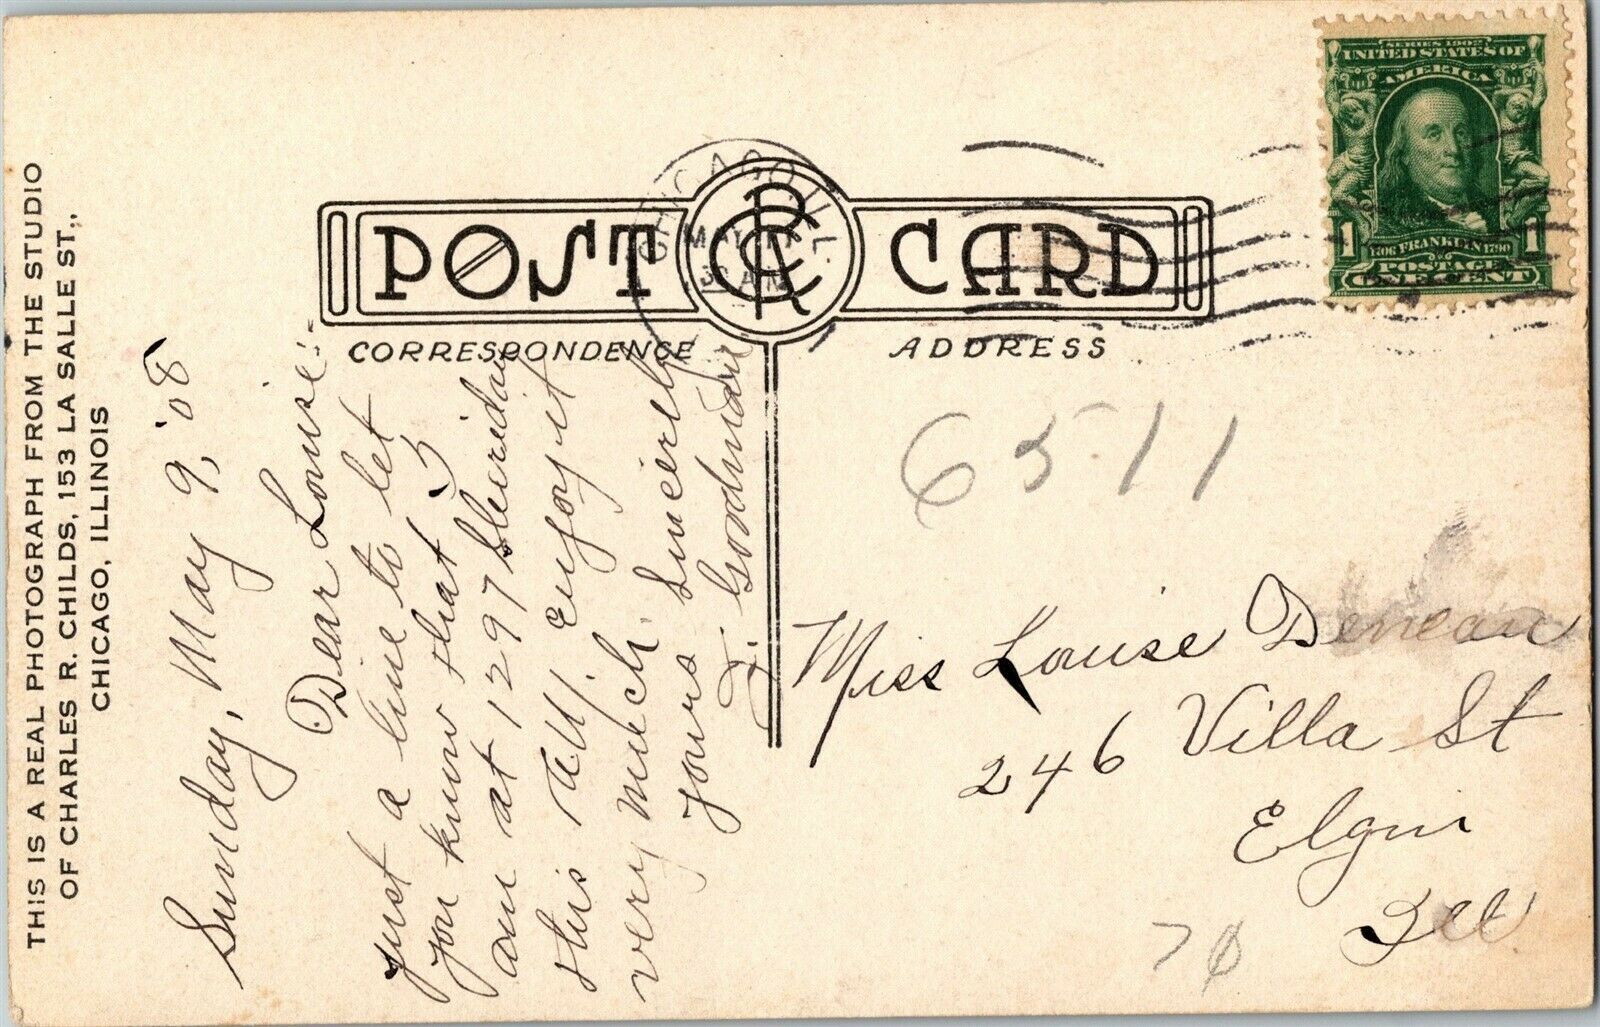 THIS IS A REAL PHOTOGRAPH FROM THE STUDIO
OF CHARLES R. CHILDS, 153 LA SALLE ST.,
CHICAGO, ILLINOIS
POST CRC CARD
CORRESPONDENCE
ADDRESS
CHICAGO, ILL.
MAY
3 AM
SERIES 1902
UNITED STATES OF
AMERICA
1706 FRANKLIN 1790
1 1
POSTAGE
ONE CENT
Sunday, May 9, '08
Dear Louise:-
Just a line to let
you know that I
am at 1297 Sheridan
this A.M. Enjoy it
very much. Sincerely
yours
J. Goodman
6511
Miss Louise Denean
246 Villa St
Elgin
Ill
70